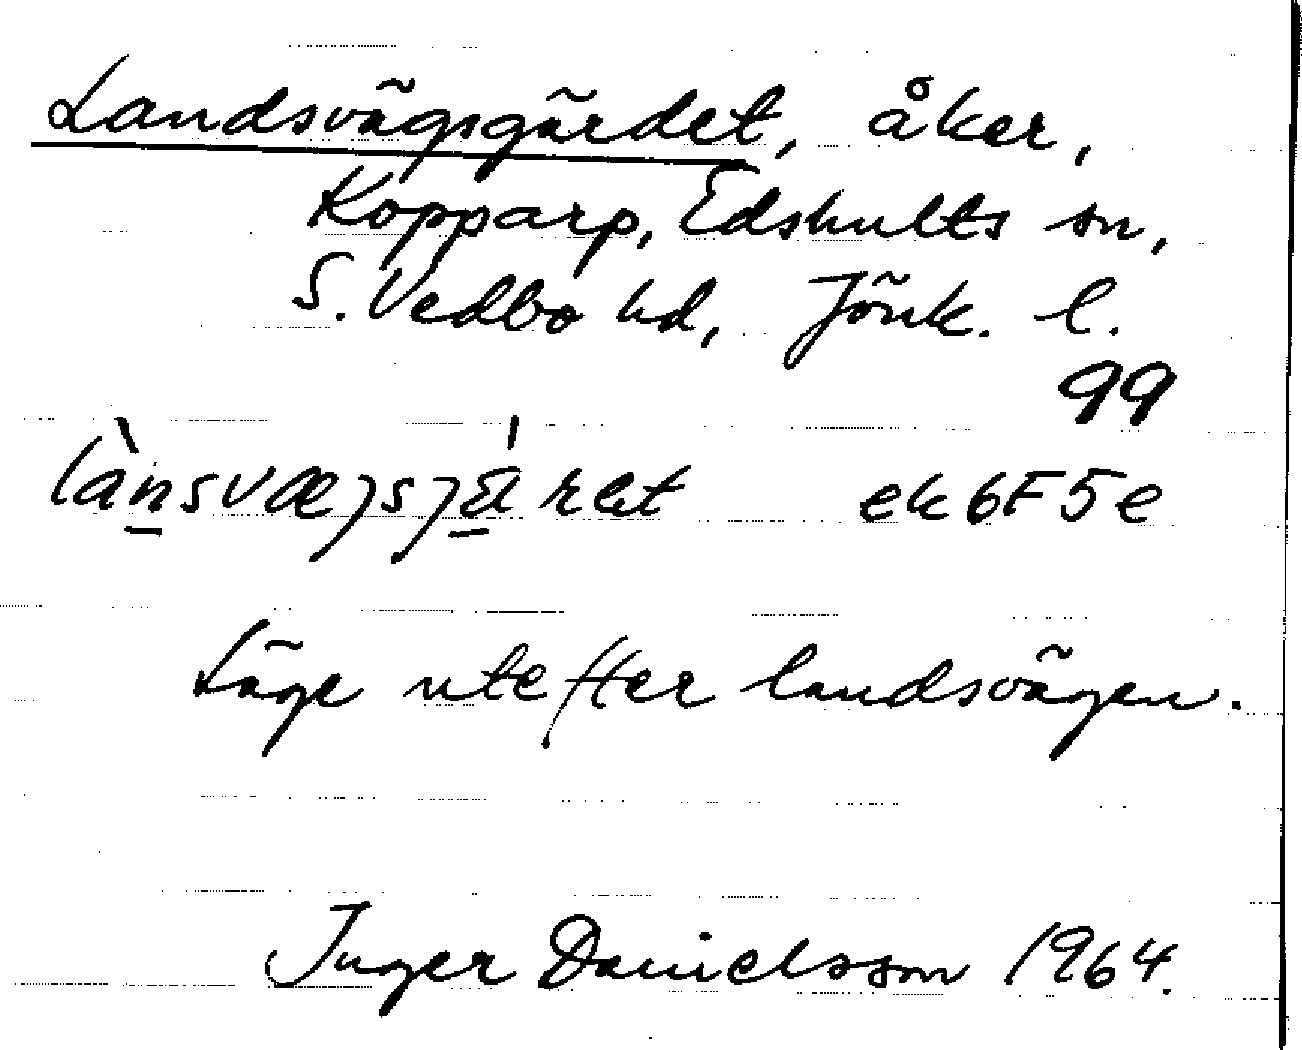 Landsvägsgärdet, åker,
Kopparp, Edshults sn,
S. Vedbo hd, Jönk. l.
99
ek 6F5e
Läge utefter landsvägen.
Inger Danielsson 1964.